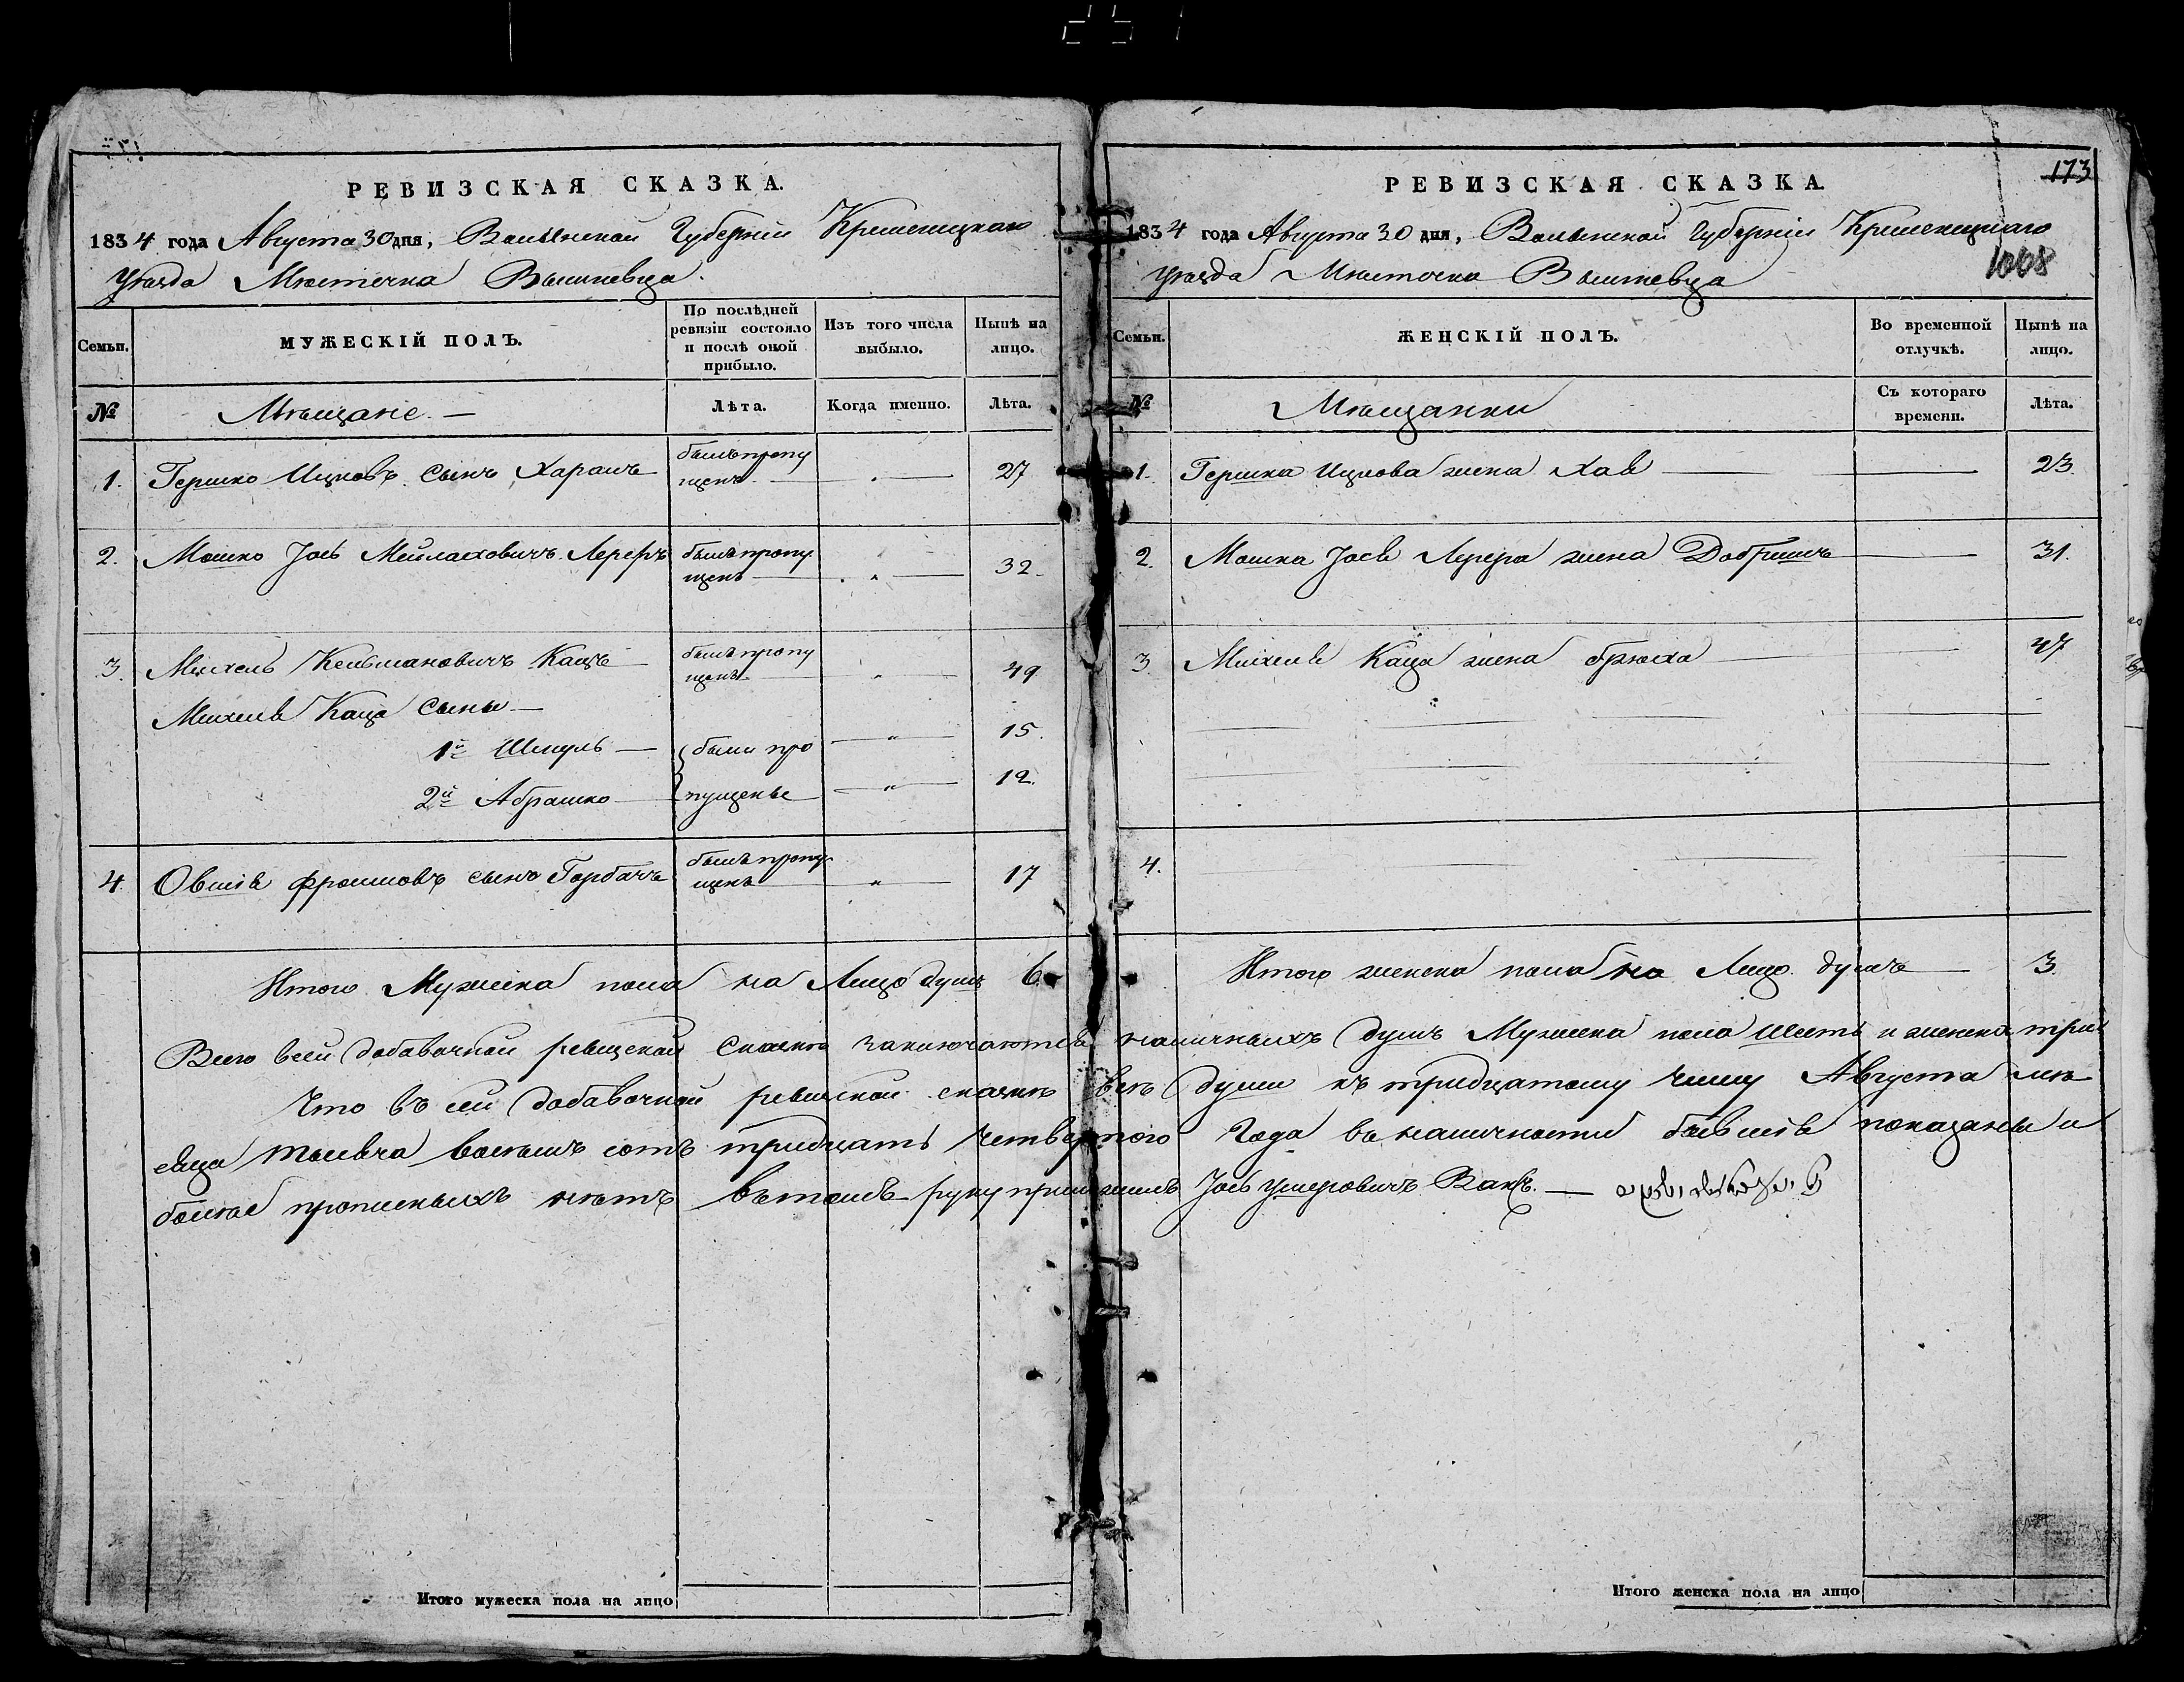 РЕВИЗСКАЯ СКАЗКА.
1834 года Августа 30 дня, Волынской Губерніи Кременецкаго
уѣзда Мѣстечка Вышневца.
Семьи.
МУЖЕСКІЙ ПОЛЪ.
По послѣдней ревизіи состояло и послѣ оной прибыло.
Изъ того числа выбыло.
Нынѣ на лицо.
№
Мѣщане.
Лѣта.
Когда именно.
Лѣта.
1. Гершко Ицковъ сынъ Харашъ былъ пропу
щенъ 27
2. Мошко Іось Мейлаховичъ Лереръ былъ пропу
щенъ 32
3. Михель Кельмановичъ Кацъ былъ пропу
щенъ 49
Михеля Каца сыны
1й Шмуль были про 15.
2й Абрашко пущены 12.
4. Овшія Фроимовъ сынъ Горбачъ былъ пропу
щенъ 17
Итого Мужеска пола на Лицо душъ 6
173
РЕВИЗСКАЯ СКАЗКА
1834 года Августа 30 дня, Волынской Губерніи Кременецкаго
уѣзда Мѣсточка Вышневца
1068
Семьи.
ЖЕНСКІЙ ПОЛЪ.
Во временной отлучкѣ.
Нынѣ на лицо.
№
Мѣщанки
Съ котораго времени.
Лѣта.
1. Гершка Ицкова жена Хая 23.
2. Мошка Іося Лерера жена Добришъ 31.
3 Михеля Каца жена Брюха 47
4.
Итого женска пола на Лицо душъ 3
Всего всей добавочной ревизской сказкѣ заключаются наличныхъ душъ Мужеска пола шесть и женска три
Что въ сей добавочной ревизской сказкѣ всѣ души къ тридцатому числу Августа мѣ
сяца тысяча восемь сотъ тридцать четвертого года въ наличности бывшія показаны и
болѣе прописныхъ нѣтъ въ томъ руку приложилъ Іось Ушеровичъ Вакъ.
Итого мужеска пола на лицо
Итого женска пола на лицо